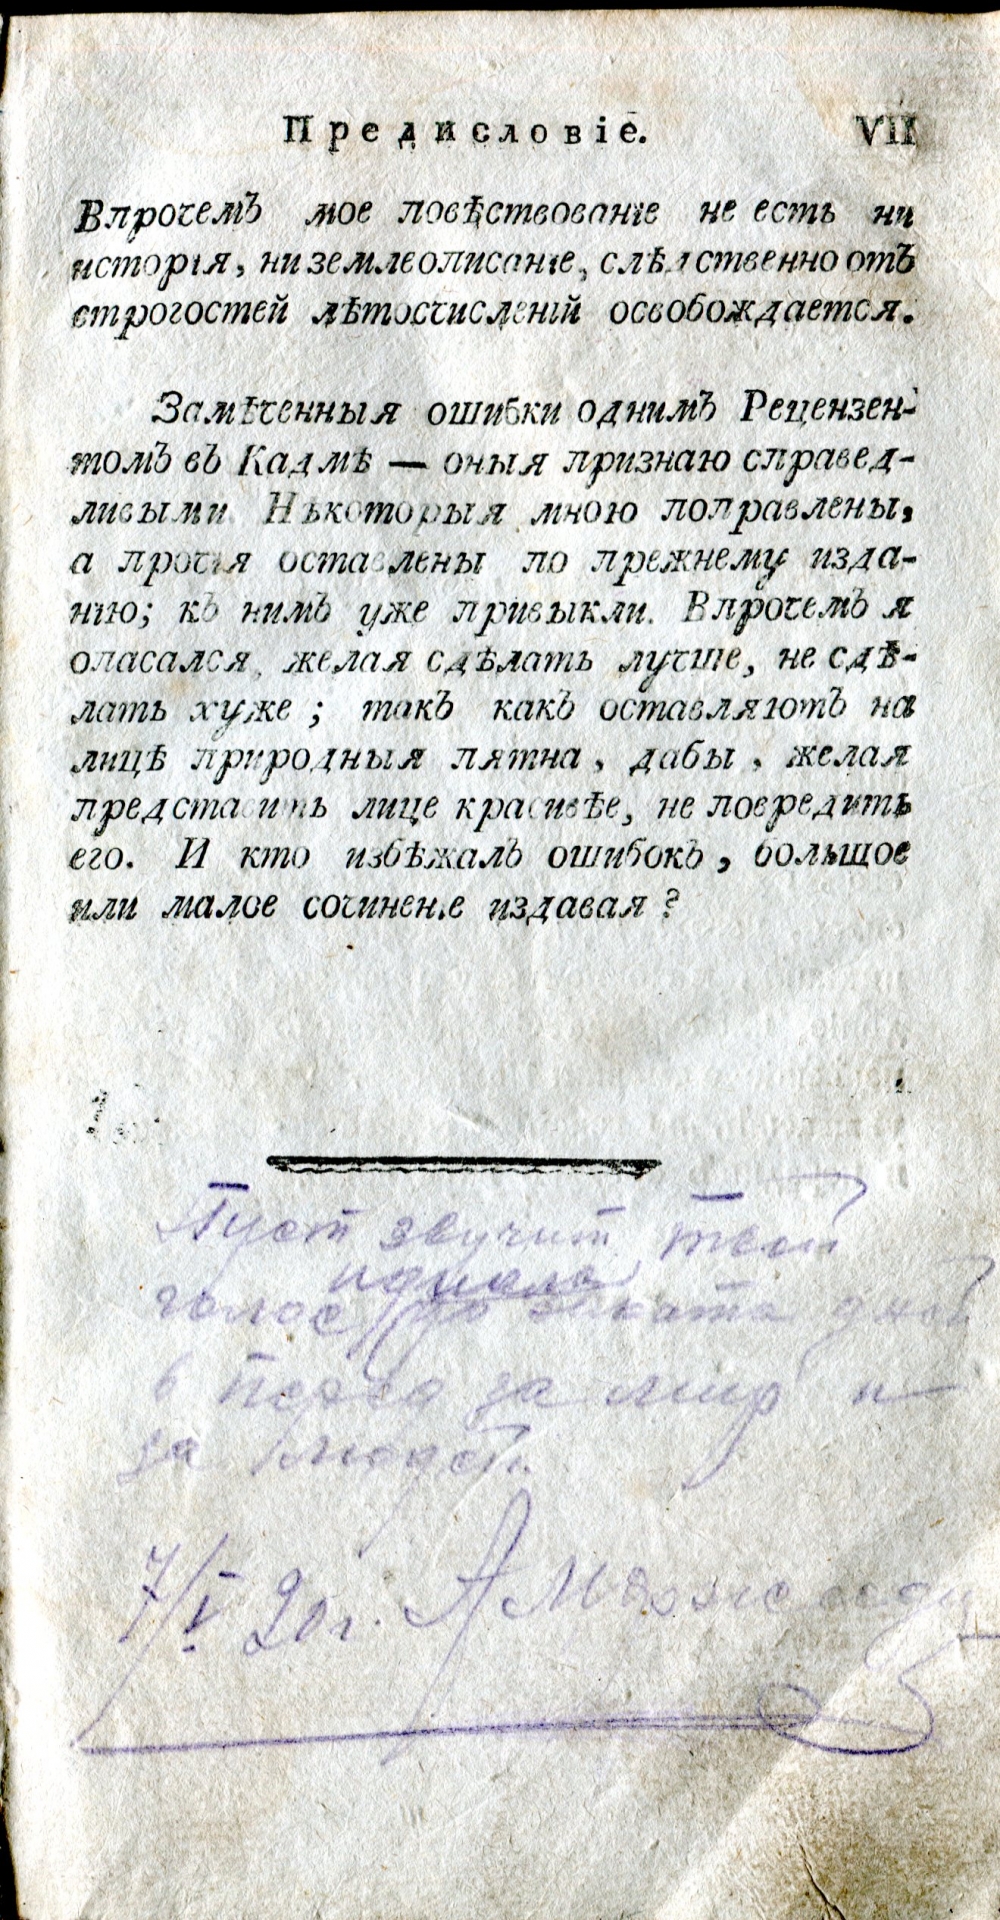 Предисловіе. VII
Впрочемъ мое повѣствованіе не есть ни
исторія, ни землеописаніе, слѣдственно отъ
строгостей лѣтосчисленій освобождается.
Замѣченныя ошибки однимъ Рецензен-
томъ въ Кадмѣ — оныя признаю справед-
ливыми. Нѣкоторыя мною поправлены,
а прочія оставлены по прежнему изда-
нію; къ нимъ уже привыкли. Впрочемъ я
опасался, желая сдѣлать лучше, не сдѣ-
лать хуже; такъ какъ оставляютъ на
лицѣ природныя пятна, дабы, желая
представить лице красивѣе, не повредить
его. И кто избѣжалъ ошибокъ, большое
или малое сочиненіе издавая?
Пуст звучит твой
голос до заката дней
в за мир и
за людей.
7/V 20 г. А